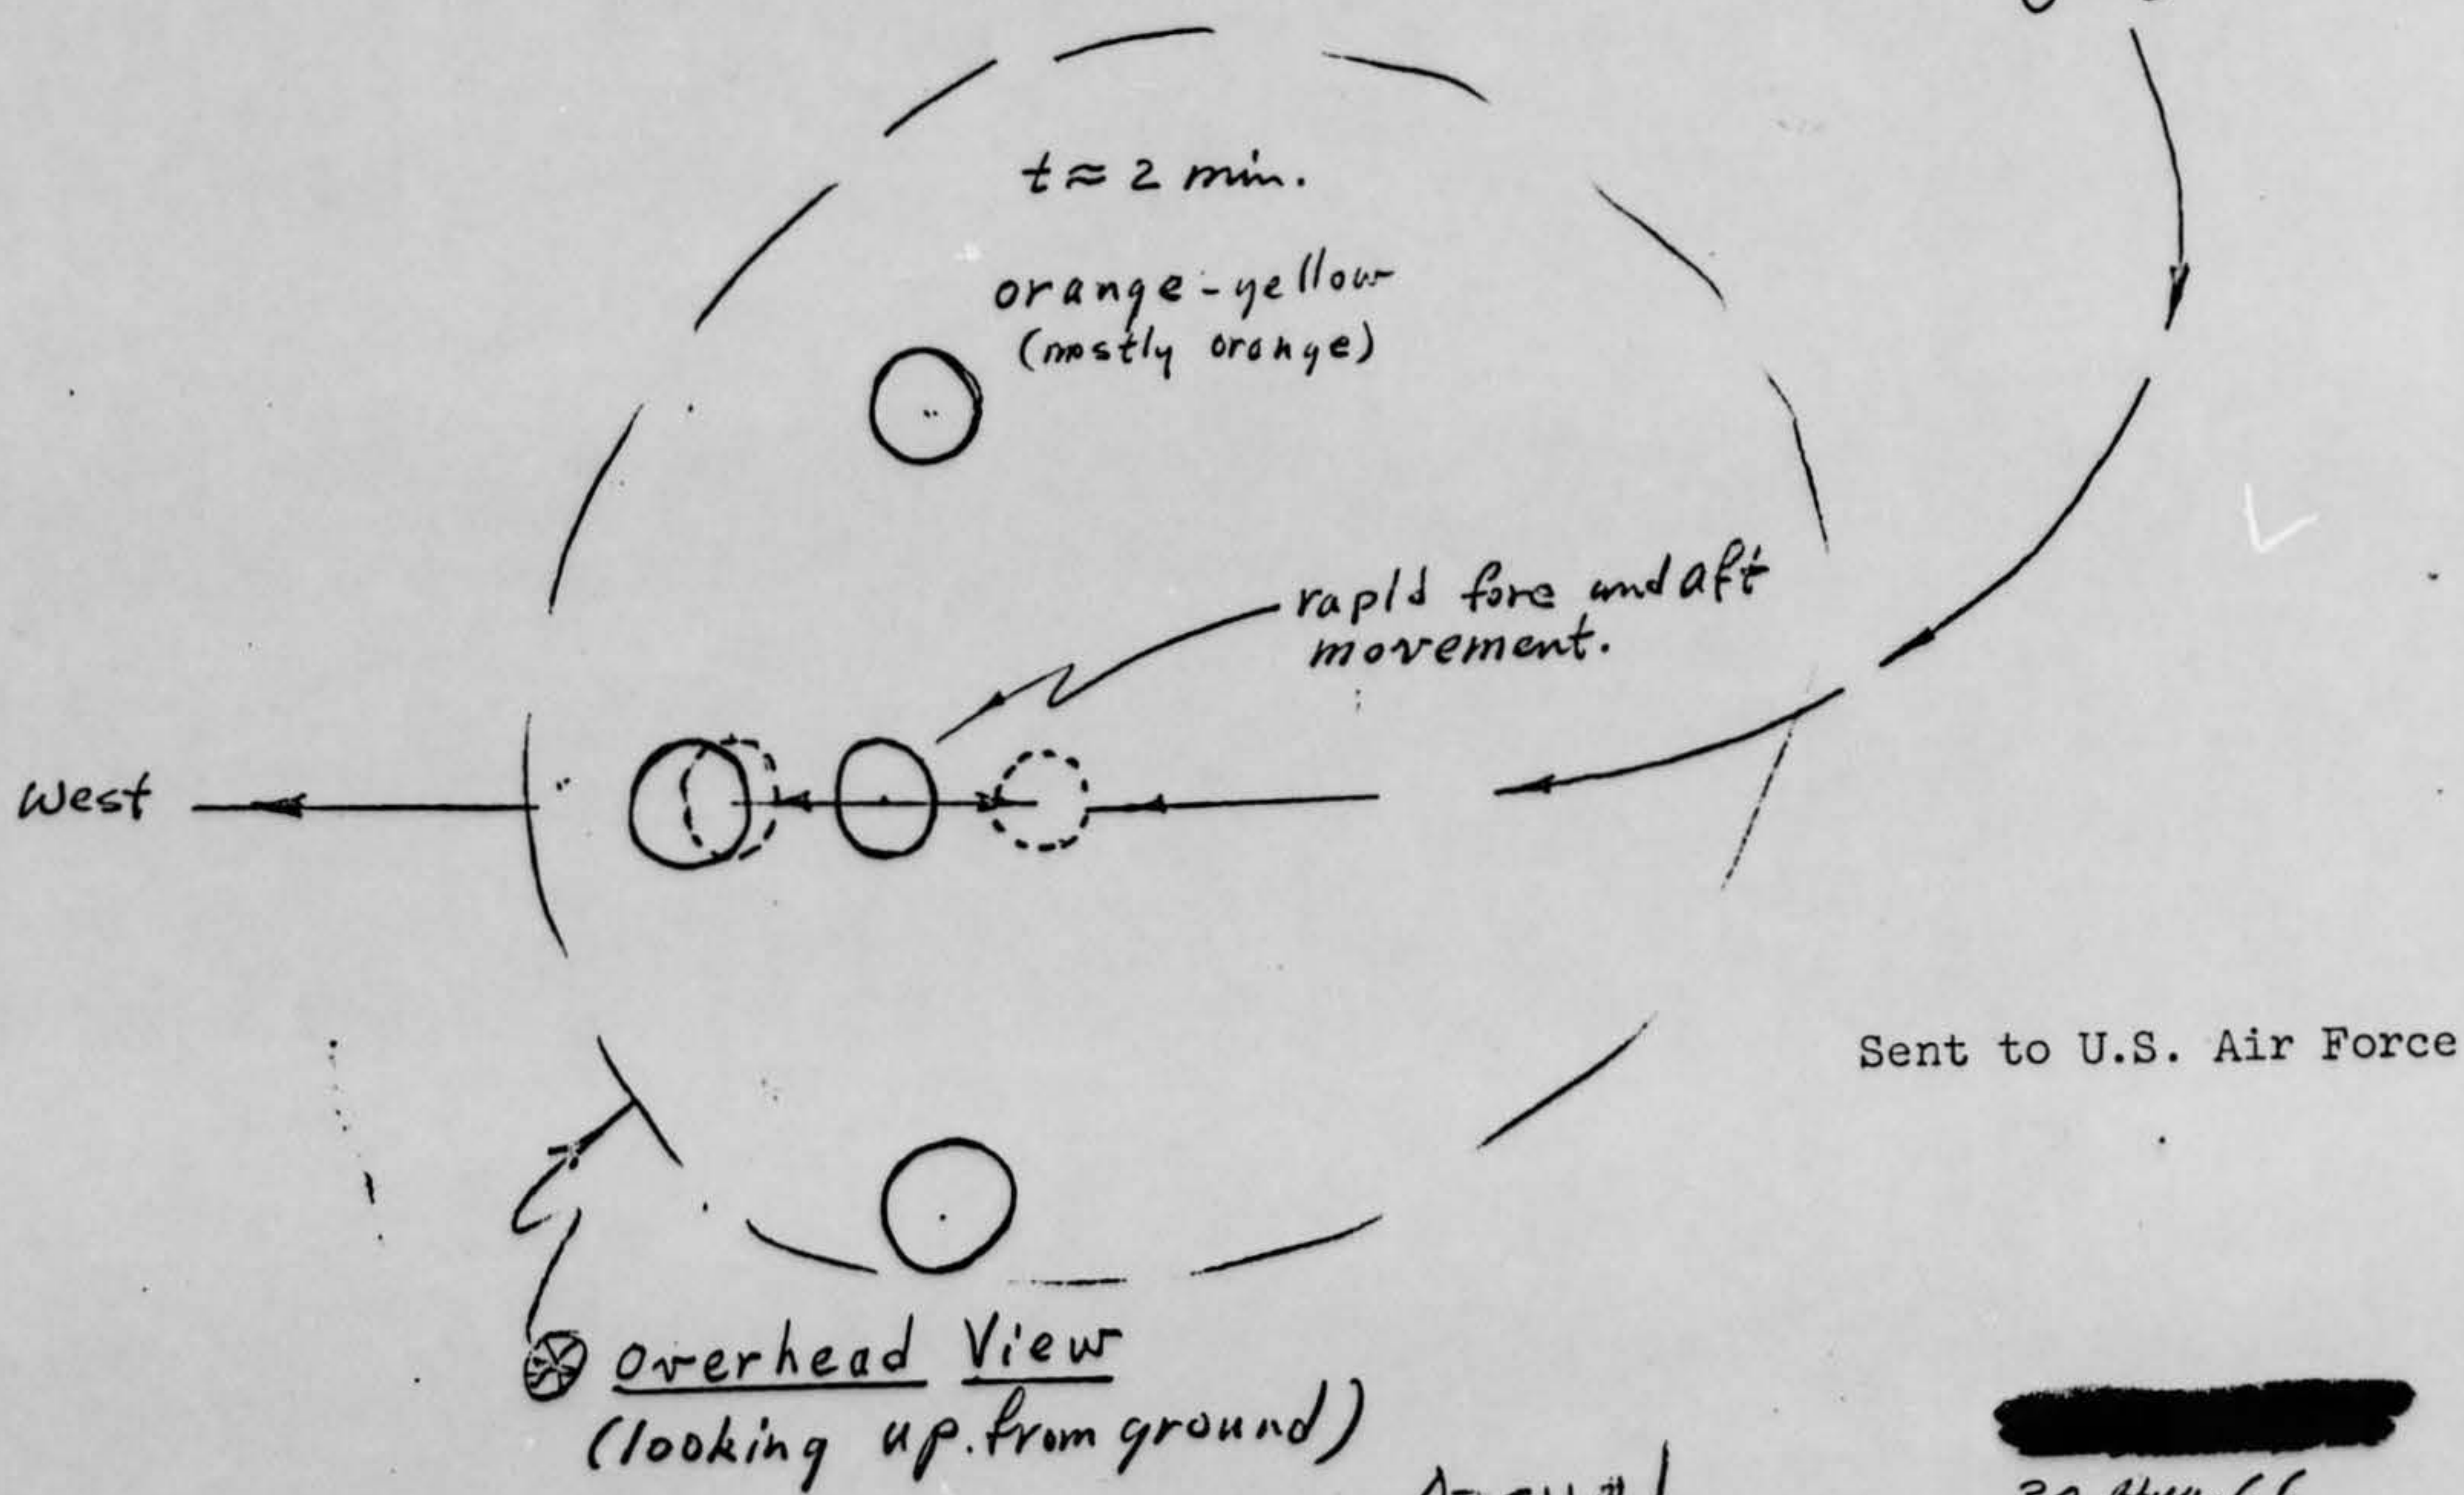 t ≈ 2 min.
orange-yellow
(mostly orange)
rapid fore and aft
movement.
West
Sent to U.S. Air Force
Overhead View
(looking up from ground)